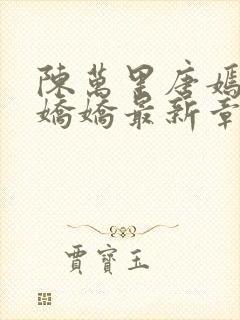 陳萬里唐嫣
嬌嬌最新章
賈寶玉